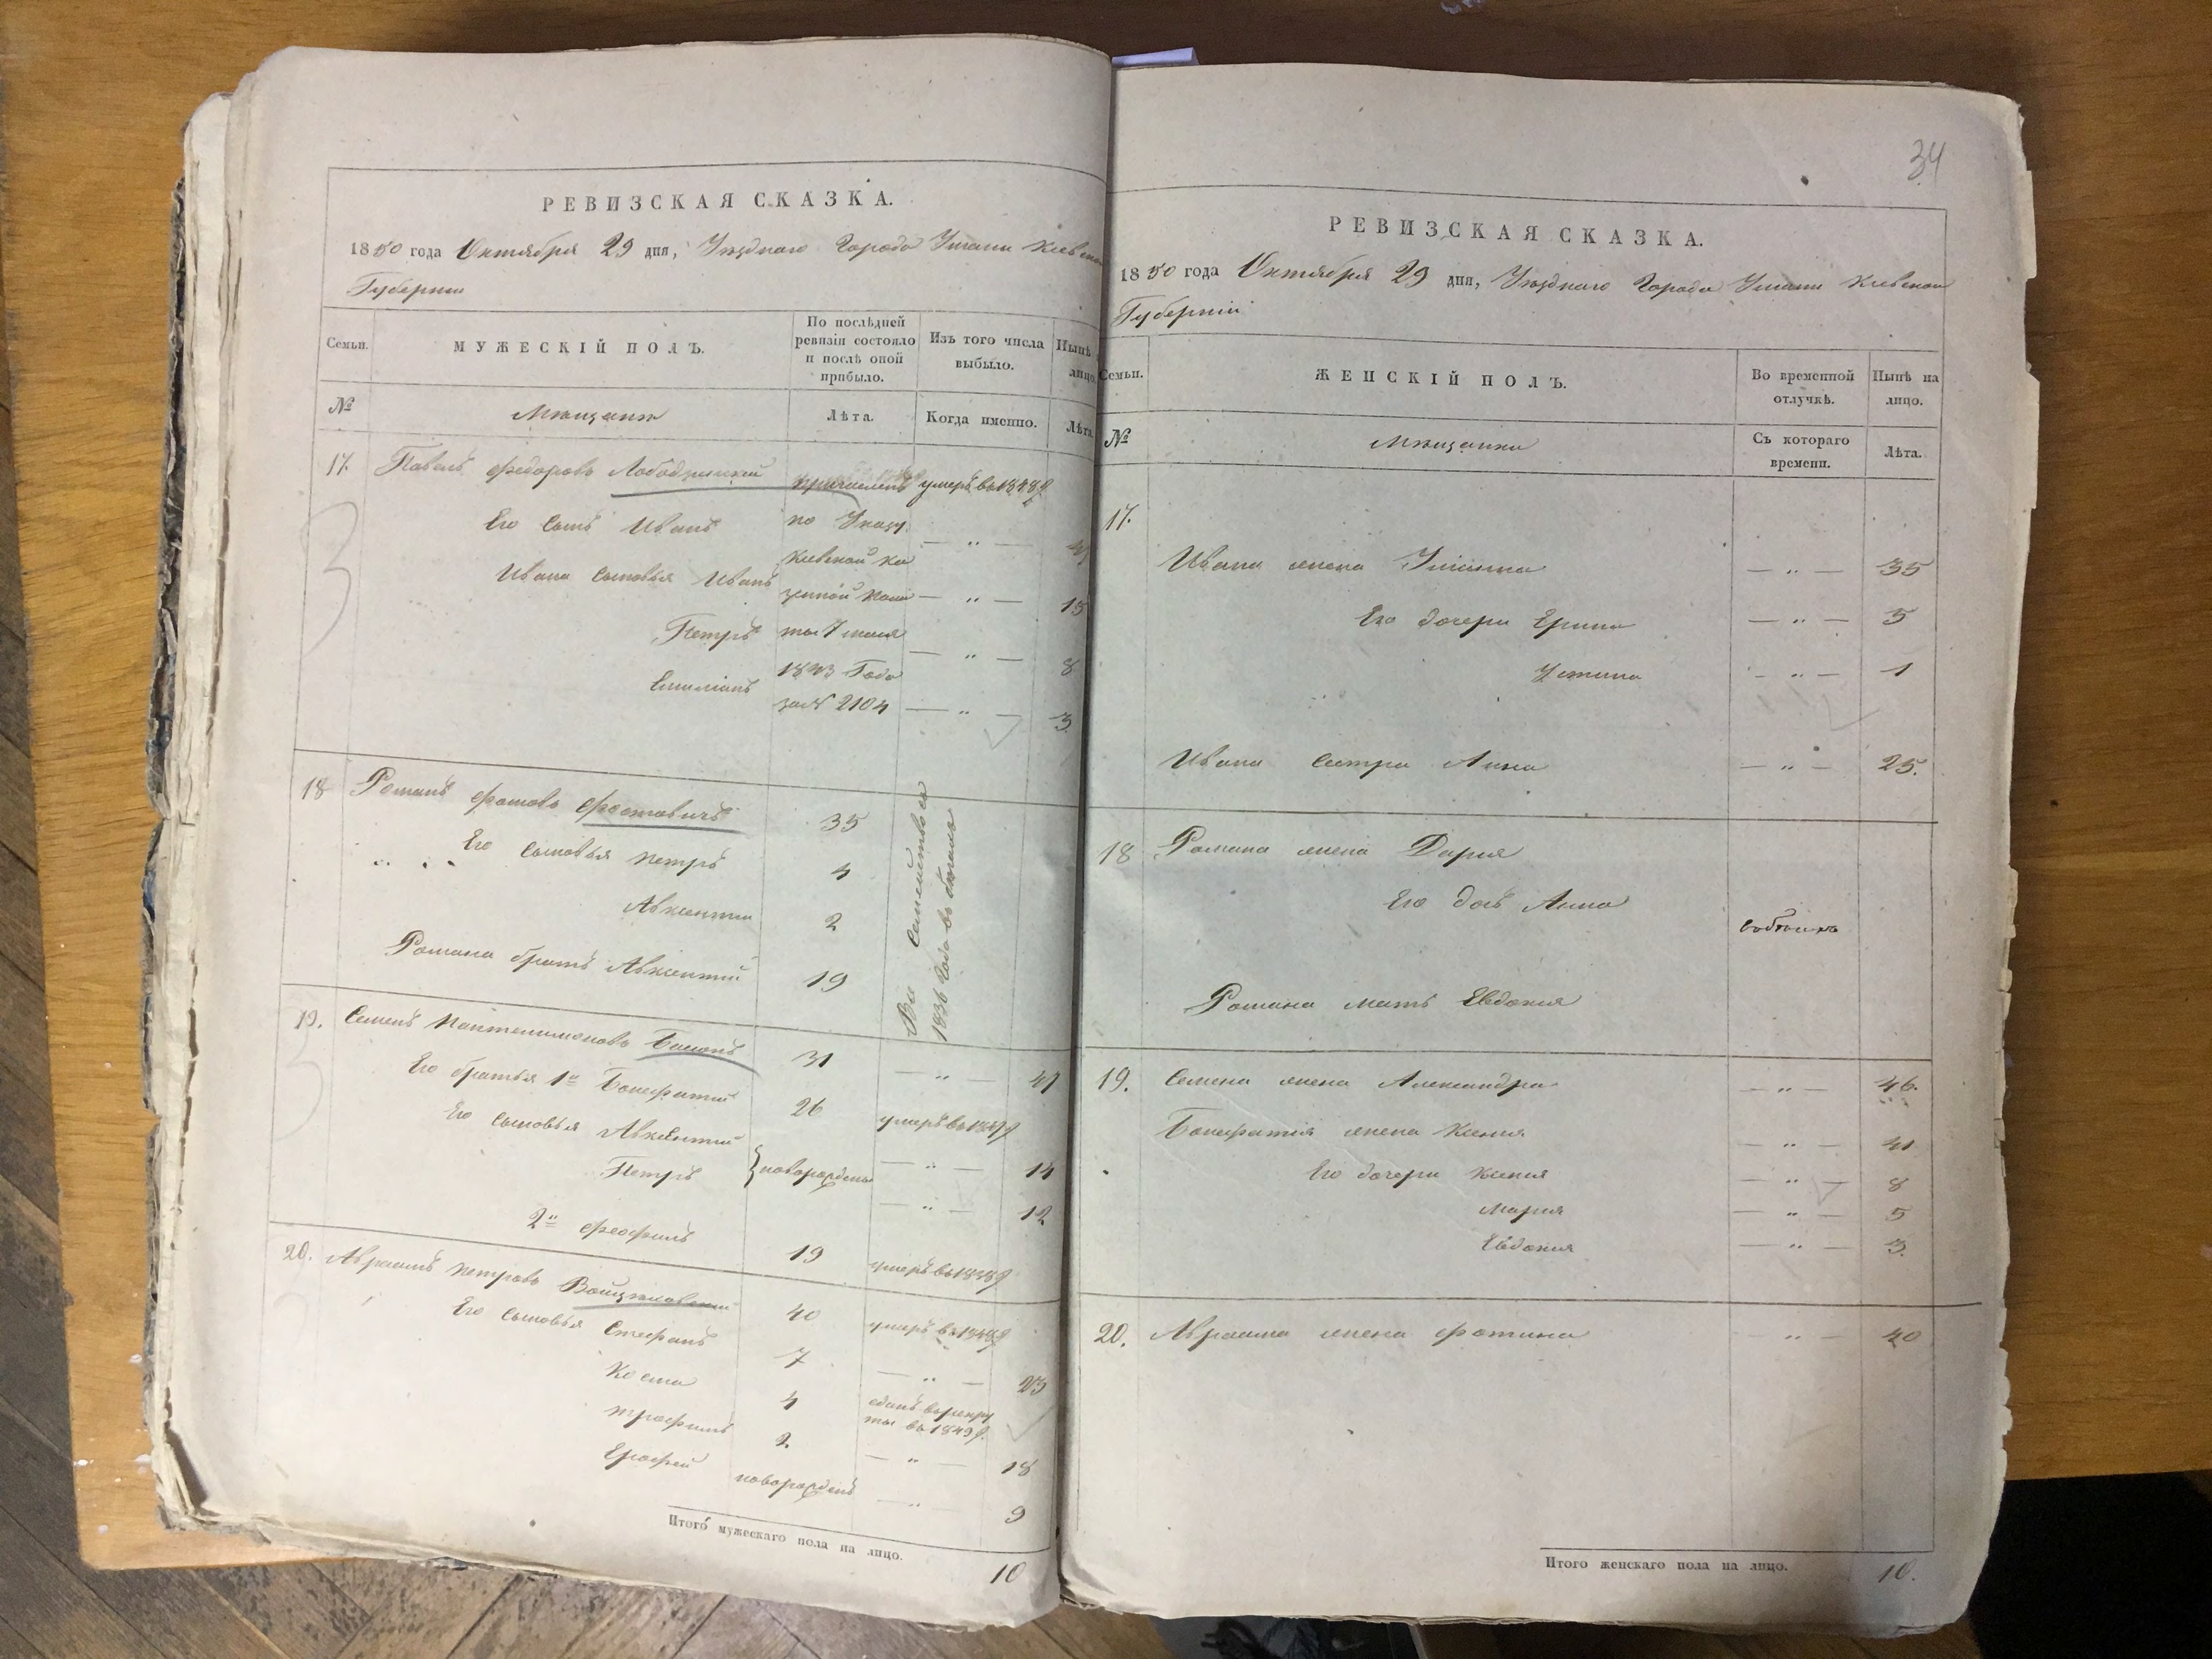 РЕВИЗСКАЯ СКАЗКА.
1850 года Октября 29 дня, Уѣзднаго Города Умани Киевской
Губернии
Семьи.
МУЖЕСКІЙ ПОЛЪ.
По послѣдней ревизіи состояло и послѣ оной прибыло.
Изъ того числа выбыло.
Нынѣ лицо.
№
Мѣщане
Лѣта.
Когда именно.
Лѣта.
17. Павелъ Федоровъ причисленъ умеръ въ 1848 г.
Его Сынъ Иванъ по Указу — " —
Ивана Сыновья Иванъ Киевской Ка
зенной Пала — " — 15
Петръ ты 7 июля — " — 8
Емиліанъ 1843 Года
за № 2104 — " — 3
18 Романъ Фомовъ Фостовичъ 35
Его Сыновья Петръ 4
Авксентий 2
Романа братъ Авксентий 19
Все Семейство съ
1836 Года въ бѣгахъ
19. Семенъ Пантелимоновъ 31 — " — 47
Его братья 1й Бонифатий 26 умеръ въ 1849 г.
Его Сыновья Авксентий } новорожденны — " — 14
Петръ — " — 12
2й Феофилъ 19 умеръ въ 1838 г.
20. Авраамъ Петровъ 40 умеръ въ 1848 г.
Его Сыновья Стефанъ 7 — " — 23
Косма 4 сданъ въ рекру
ты въ 1849 г.
Трофимъ 2. — " — 18
Ерофей новорожденъ — " — 9
Итого мужескаго пола на лицо. 10
34
РЕВИЗСКАЯ СКАЗКА.
1850 года Октября 29 дня, Уѣзднаго Города Умани Киевской
Губерніи
Семьи.
ЖЕНСКІЙ ПОЛЪ.
Во временной отлучкѣ.
Нынѣ на лицо.
№
Мѣщанки
Съ котораго времени.
Лѣта.
17.
Ивана жена — " — 35
Его дочери Ерина — " — 5
Устина — " — 1
Ивана Сестра Анна — " — 25.
18 Романа жена Дария
Его дочь Анна
въ бѣгахъ
Романа мать Евдокия
19. Семена жена Александра — " — 46.
Бонифатія жена Ксения — " — 41
Его дочери Ксения — " — 8
Мария — " — 5
Евдокия — " — 3.
20. Авраама жена Фотина — " — 40
Итого женскаго пола на лицо. 10.